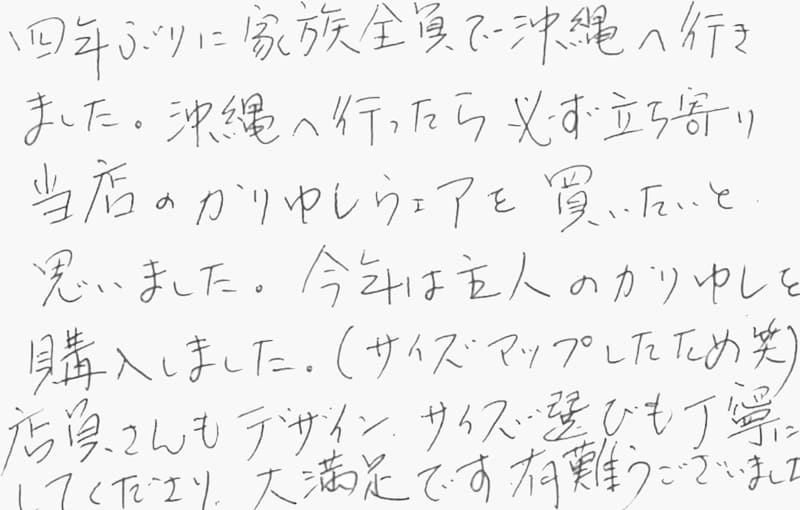 四年ぶりに家族全員で沖縄へ行き
ました。沖縄へ行ったら必ず立ち寄り
当店のかりゆしウェアを買いたいと
思いました。今年は主人のかりゆしを
購入しました。(サイズマップしたため笑)
店員さんもデザイン、サイズ選びも丁寧に
してくださり、大満足です。有難うございました